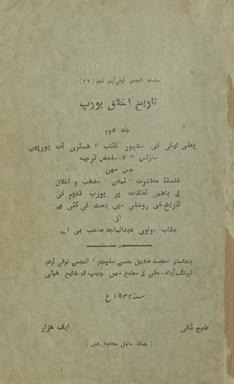 سلسلۂ انجمن ترقی اردو نمبر (۲۹)
تاریخ اخلاق یورپ
جلد دوم
یعنی لیکی کی مشہور کتاب "ہسٹری آف یورپین
مارلس" کا ملخص ترجمہ
جس میں
فلسفۂ معاشرت، تمدن، مذہب و اخلاق
کے باہمی تعلقات پر یورپ قدیم کی
تاریخ کی روشنی میں بحث کی گئی ہے
از
جناب مولوی عبدالماجد صاحب بی اے
باہتمام محمد صدیق حسن منیجر انجمن ترقی اردو
اورنگ آباد دکن کے مطبع میں چھپ کر شایع ہوئی
سنہ ۱۹۳۲ ع
طبع ثانی ایک ہزار
(جملہ حقوق محفوظ ہیں)